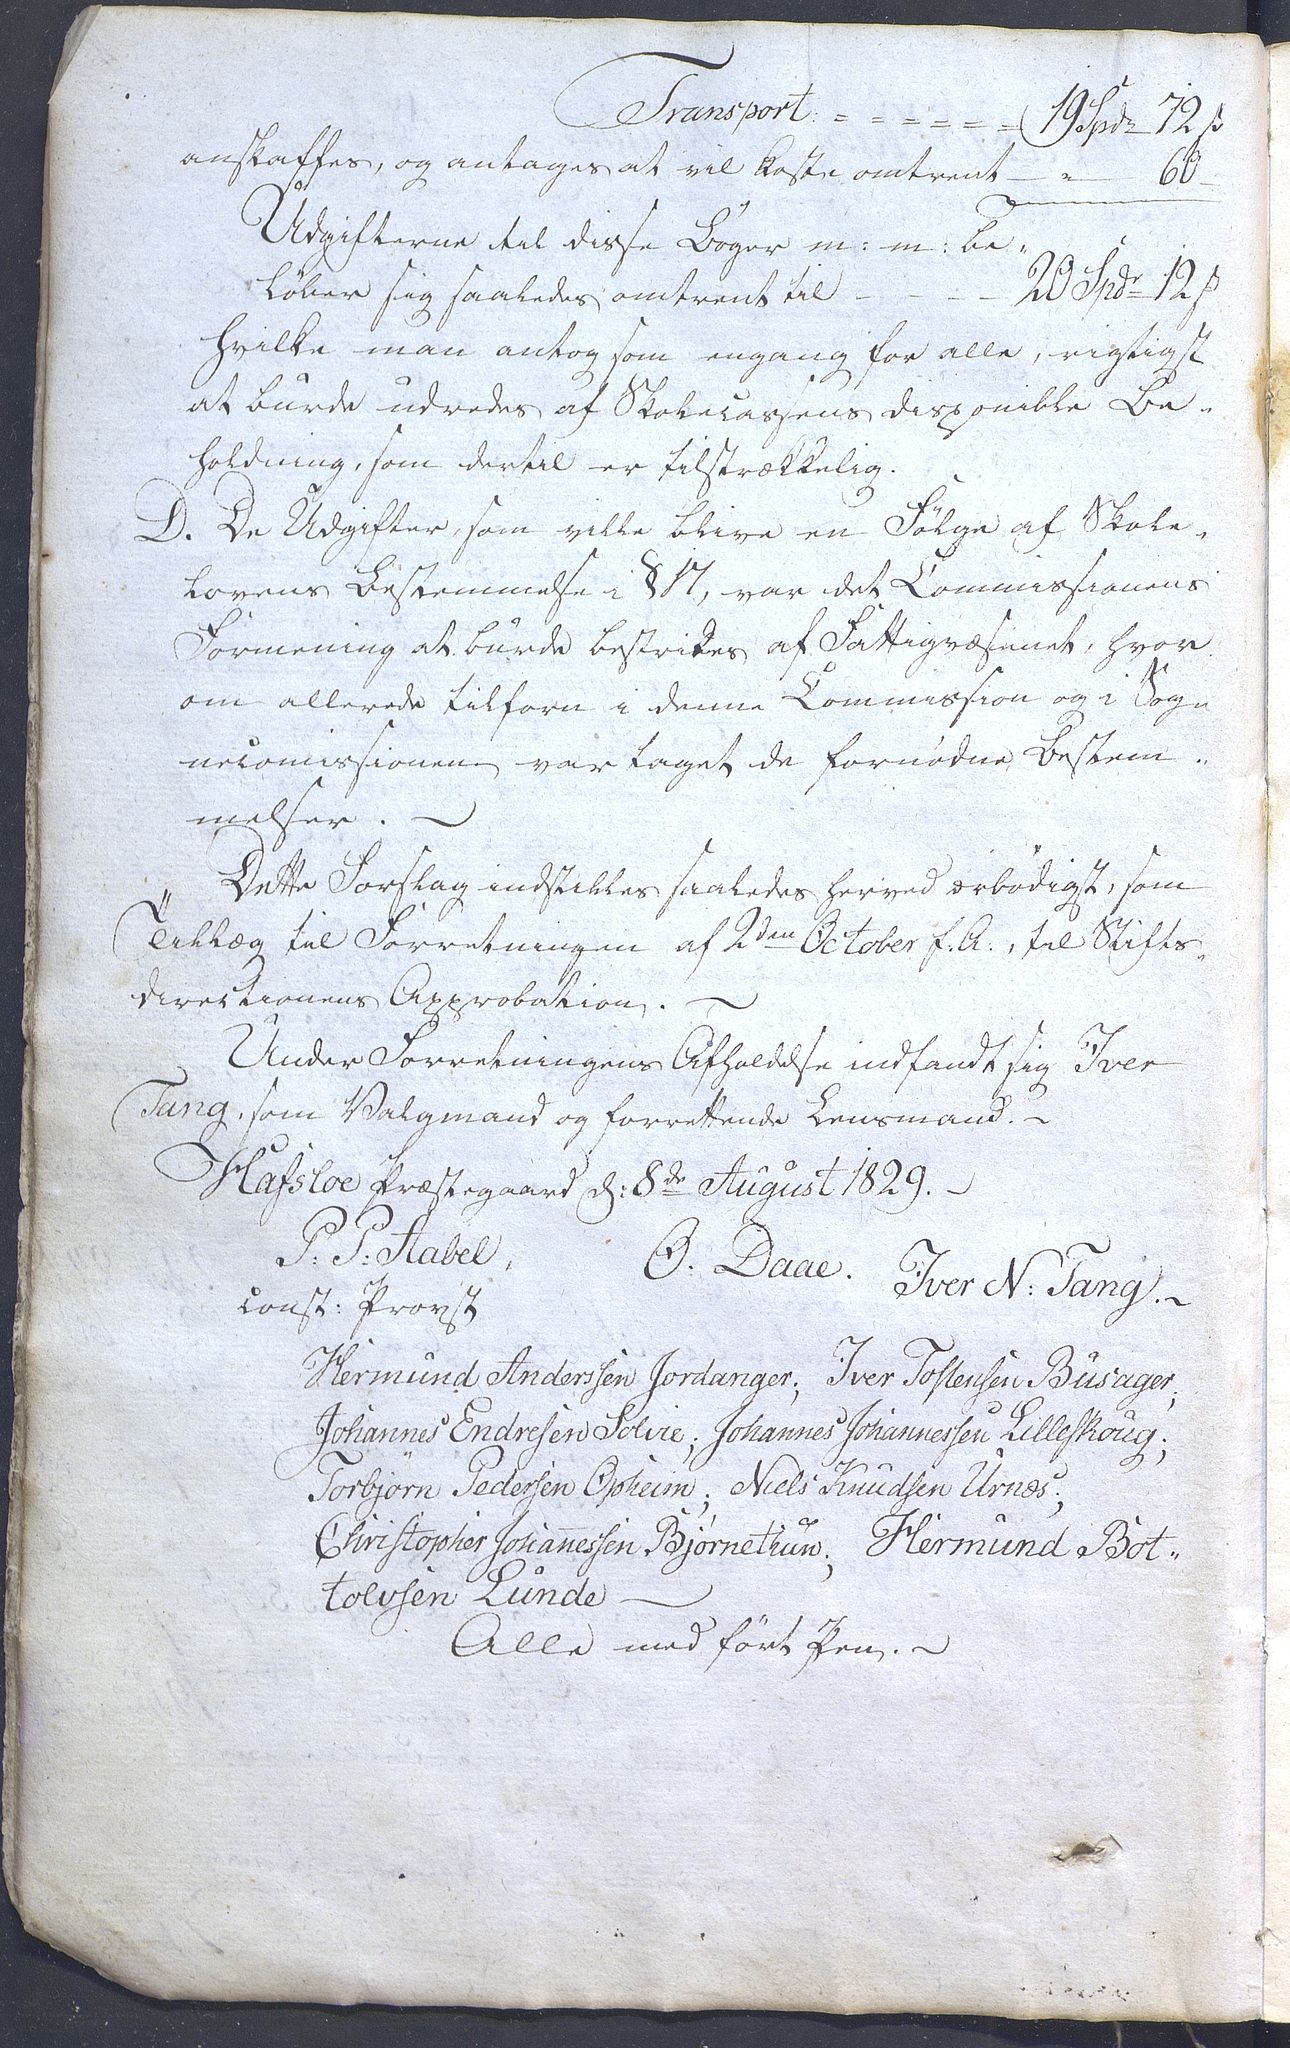 Transport: = = = = = = 19 Spdr 72 ß
anskaffes, og antages at vil koste omtrent — „ — 60 —
Udgifterne til disse Bøger m: m: be„
løber sig saaledes omtrent til - - - - 20 Spdr 12 ß
hvilke man antog som engang for alle, rigtigst
at burde udredes af Skolecassens disponible Be„
holdning, som dertil er tilstrækkelig.
D. De Udgifter, som ville blive en Følge af Skole„
lovens Bestemmelse i § 17, var det Commissionens
Formening at burde bestrides af Fattigvæsenet, hvor
om allerede tilforn i denne Commission og i Sog
necomissionen var taget de fornødne Bestem„
melser. —
Dette Forslag indstilles saaledes herved ærbødigst, som
Tillæg til Forretningen af 2den October f. A., til Stifts„
directionens Approbation. —
Under Forretningens Afholdelse indfandt sig Iver
Tang, som Valgmand og forrettende Lensmand. —
Hafsloe Præstegaard d: 8de August 1829. —
P. P. Stabel, O. Daae. Iver N: Tang. —
const: Provst
Hermund Anderssen Jordanger; Iver Tostensen Busager;
Johannes Endresen Solvie; Johannes Johannessen Lilleskoug;
Torbjørn Pedersen Opheim; Niels Knudsen Urnæs;
Christopher Johannessen Bjørnethun; Hermund Bot„
tolvsen Lunde —
Alle med ført Pen. —